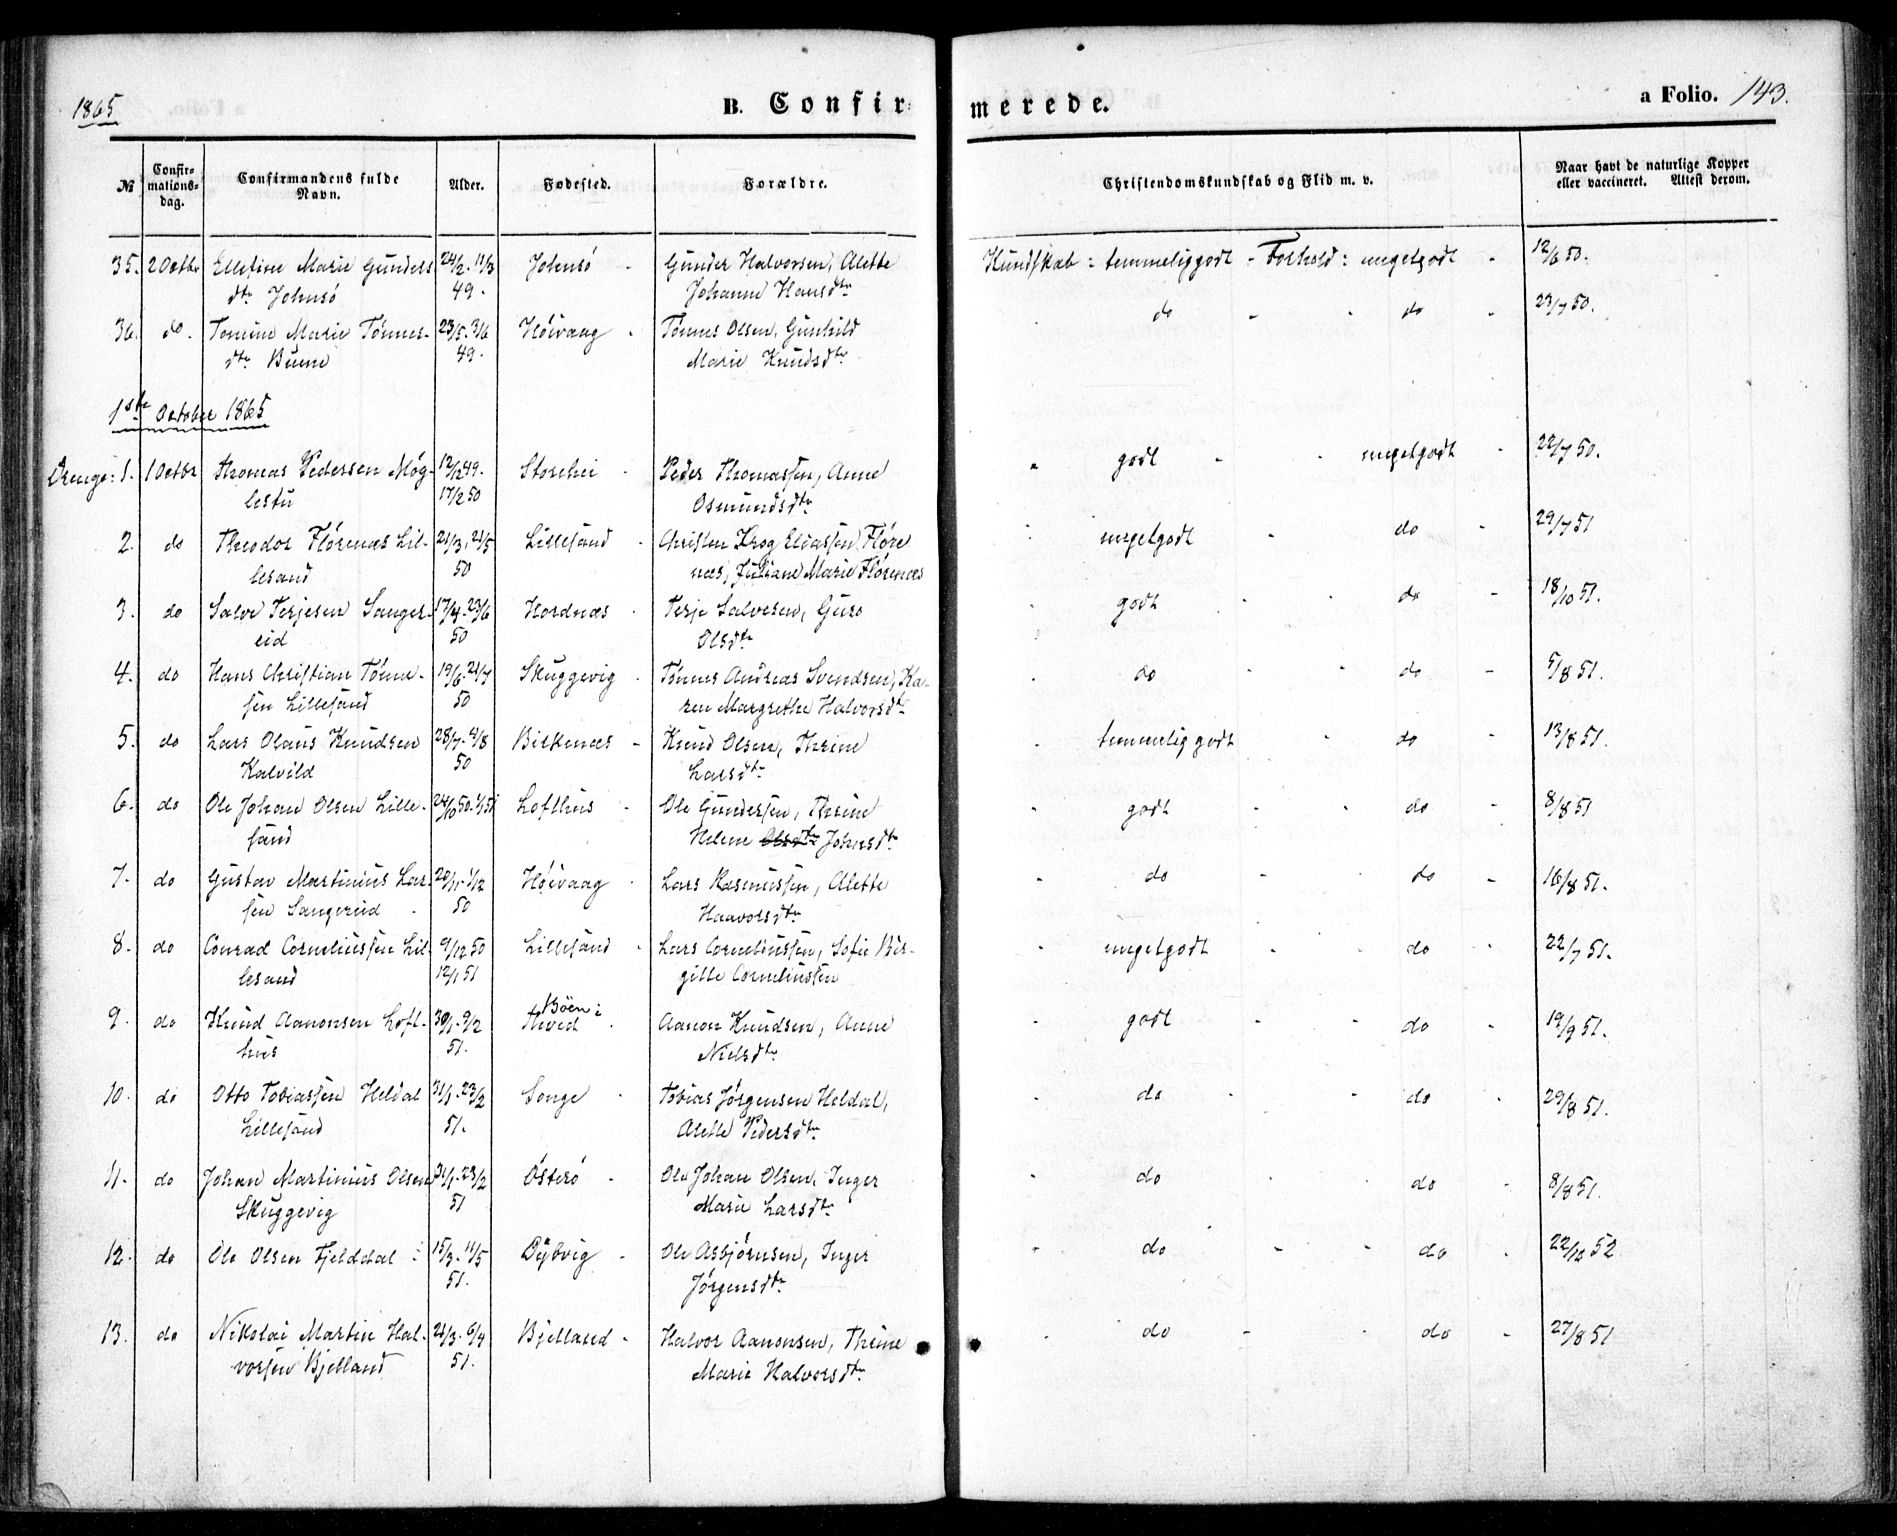 1865
B. Confir-
merede.
a Folio. 143.
№
Confir-
mations-
dag.
Confirmandens fulde
Navn.
Alder.
Fødested.
Forældre.
Christendomskundskab og Flid m. v.
Naar havt de naturlige Kopper
eller vaccineret. Attest derom.
35. 2 Octbr Ellefine Marie Gunders 24/2 - 11/3 Johnsö - Gunder Halvorsen, Alette Kundskab: temmelig godt - Forhold: meget godt - 12/6 50.
dtr Johnsö 49. Johanne Hansdtr
36. do. Tomine Marie Tönnes- 23/5 - 3/6 Höivaag - Tönnes Olsen, Gunhild do - - do - 23/7 50.
dtr Buene 49. Marie Knudsdtr
1ste October 1865
Drenge: 1. 1 Octbr Thomas Pedersen Møg- 12/2 49. Storehei - Peder Thomassen, Anne " godt - - megetgodt - 22/7 50.
lestu 17/2 50 Osmundsdtr
2. do Theodor Flörenæs Lil- 21/3, 21/5 Lillesand - Christen Krog Eliassen Flöre megetgodt - do - 29/7 51
lesand 50 næs, Juliane Marie Flörenæs
3. do Salve Terjesen Sanger- 17/4 - 23/6 Hordnæs - Terje Salvesen, Guro godt - - do - 18/10 51.
eid 50 Olsdtr
4. do Hans Christian Tönne- 19/6 - 21/7 Skuggevig - Tönnes Andreas Svendsen, Ka- do - - do - 5/8 51.
sen Lillesand 50 ren Margrethe Halvorsdtr
5. do Lars Olaus Knudsen 28/7 - 4/8 Birkenæs - Knud Olsen, Thrine temmelig godt - do - 13/8 51.
Kalvild 50 Larsdtr
6. do Ole Johan Olsen Lille- 24/10 50. 1/1 51 Lofthus - Ole Gundersen, Thrine godt - - do - 8/8 51
sand Helene Olsdtr Johnsdtr
7. do Gustav Martinius Lar- 20/11 - 1/12 Höivaag - Lars Rasmussen, Alette do - - do - 16/8 51.
sen Sangereid - 50 Haavorsdtr
8. do Conrad Corneliussen Lil- 9/12 50 Lillesand - Lars Corneliussen, Sofie Bir- megetgodt - - do - 22/7 51.
lesand 12/1 51 gitte Corneliussen
Böen i
9. do Knud Aanonsen Loft- 30/1 - 9/2 Hered - Aanon Knudsen, Anne godt - - do - 19/9 51.
hus 51. Nielsdtr
10. do Otto Tobiassen Heldal 31/1 - 23/2 Songe - Tobias Jörgensen Heldal, do - - do - 29/8 51.
Lillesand 51. Alette Pedersdtr
11. do Johan Martinius Olsen 31/1 - 23/2 Österö - Ole Johan Olsen, Inger do - - do - 8/8 51.
Skuggevig 51 Marie Larsdtr
12. do Ole Olsen Fjelddal - 15/3 - 11/5 Dybvig - Ole Asbjörnsen, Inger do - - do - 22/10 52
51. Jörgensdtr
13. do Nikolai Martin Hal- 21/3 - 6/4 Bjelland - Halvor Aanonsen, Thrine do - - do - 27/8 51
vorsen Bjelland 51. Marie Halvorsdtr